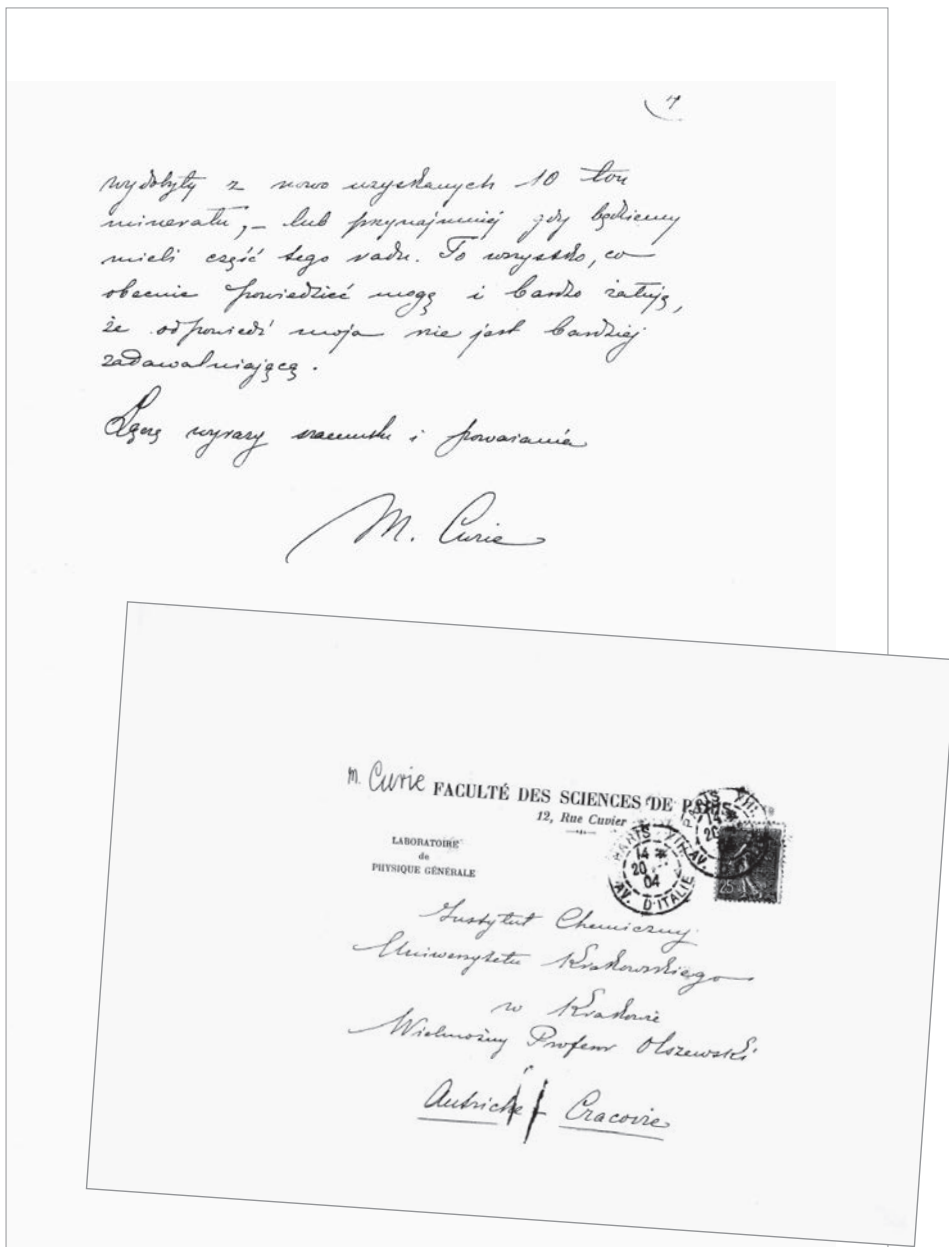 wydobyty z nowo uzyskanych 10 ton
minerału, – lub przynajmniej gdy będziemy
mieli część tego radu. To wszystko, co
obecnie powiedzieć mogę i bardzo żałuję,
że odpowiedź moja nie jest bardziej
zadawalniającą.
Łączę wyrazy szacunku i poważania
M. Curie
M. Curie FACULTÉ DES SCIENCES DE PARIS
12, Rue Cuvier
LABORATOIRE
de
PHYSIQUE GÉNÉRALE
PARIS
14
20
04
AV. D'ITALIE
PARIS
14
20
25
Instytut Chemiczny
Uniwersytetu Krakowskiego
w Krakowie
Wielmożny Profesor Olszewski
Autriche Cracovie